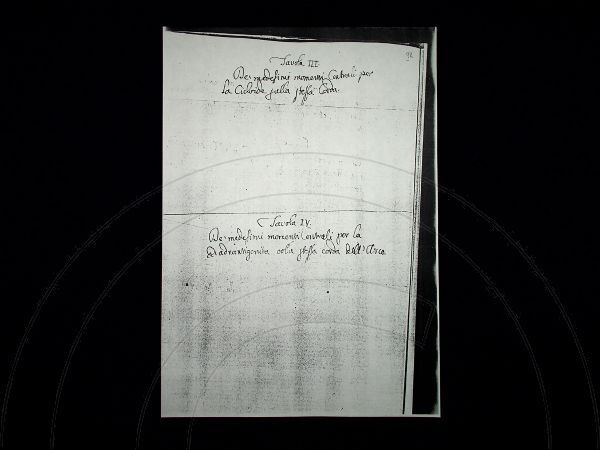 Tavola III
De medesimi momenti Centrali per
la Cicloide sulla stessa Corda.
Tavola IV.
De medesimi momenti Centrali per la
Quadrantigenita colla stessa corda dell'Arco